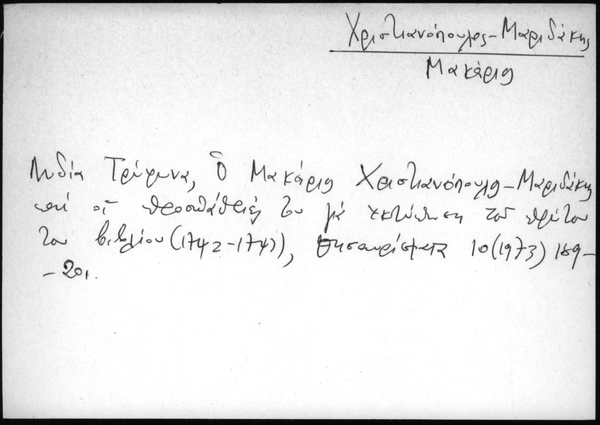 Χριστιανόπουλος-Μαριδάκης
Μακάριος
Λυδία Τρίχα, Ὁ Μακάριος Χριστιανόπουλος-Μαριδάκης
καί οἱ προσπάθειές του γιά ἐκτύπωση τοῦ πρώτου
του βιβλίου (1742-1747), Θησαυρίσματα 10 (1973) 189-
-201.